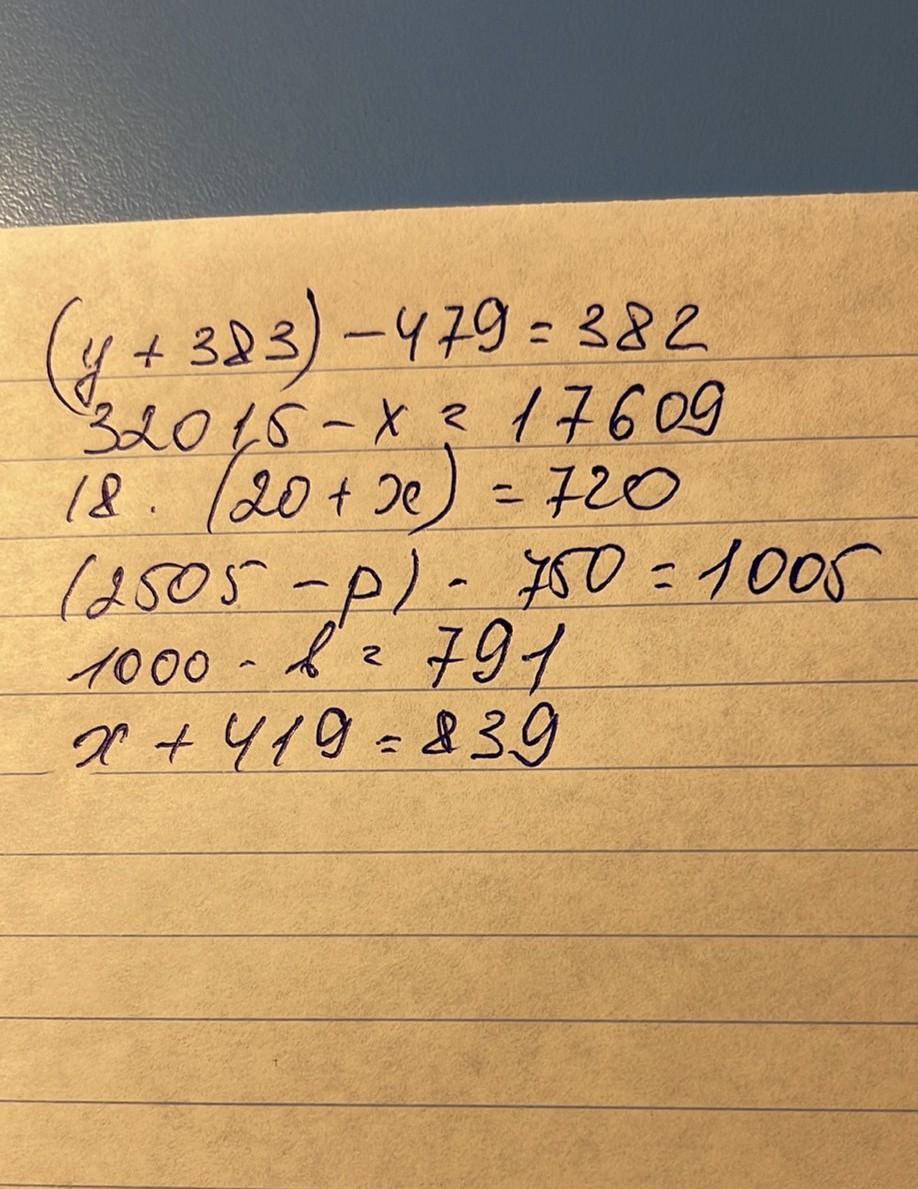 (y + 383) - 479 = 382
32015 - x = 17609
18 . (20 + x) = 720
(2505 - p) - 750 = 1005
1000 - b = 791
x + 419 = 839